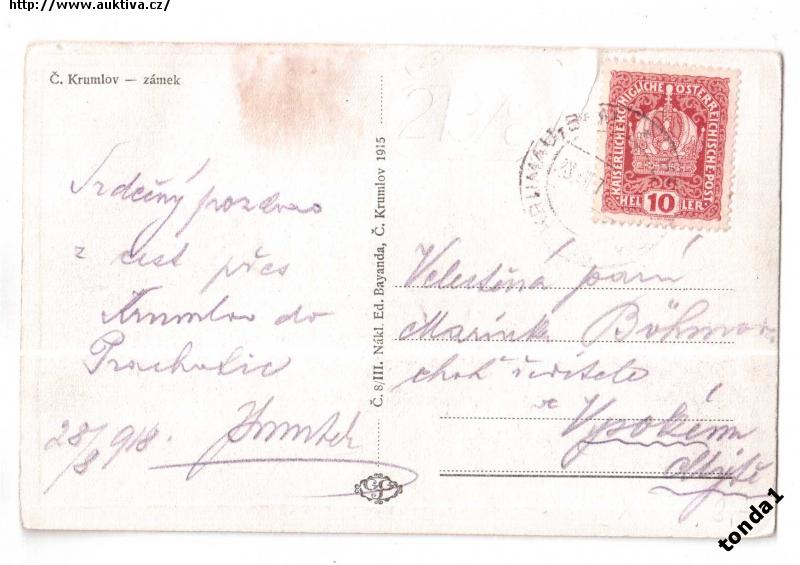 http://www.auktiva.cz/
Č. Krumlov — zámek
Srdečný pozdrav
z cest přes
Krumlov do
Prachatic
28/8 918.
Č. 8/III. Nákl. Ed. Bayanda, Č. Krumlov 1915
KRUMAU
KAISERLICHE KÖNIGLICHE ÖSTERREICHISCHE POST
HELLER 10
Velectěná paní
Marinka Böhmova
choť učitele
ve Vysokém
Mýtě
tonda1